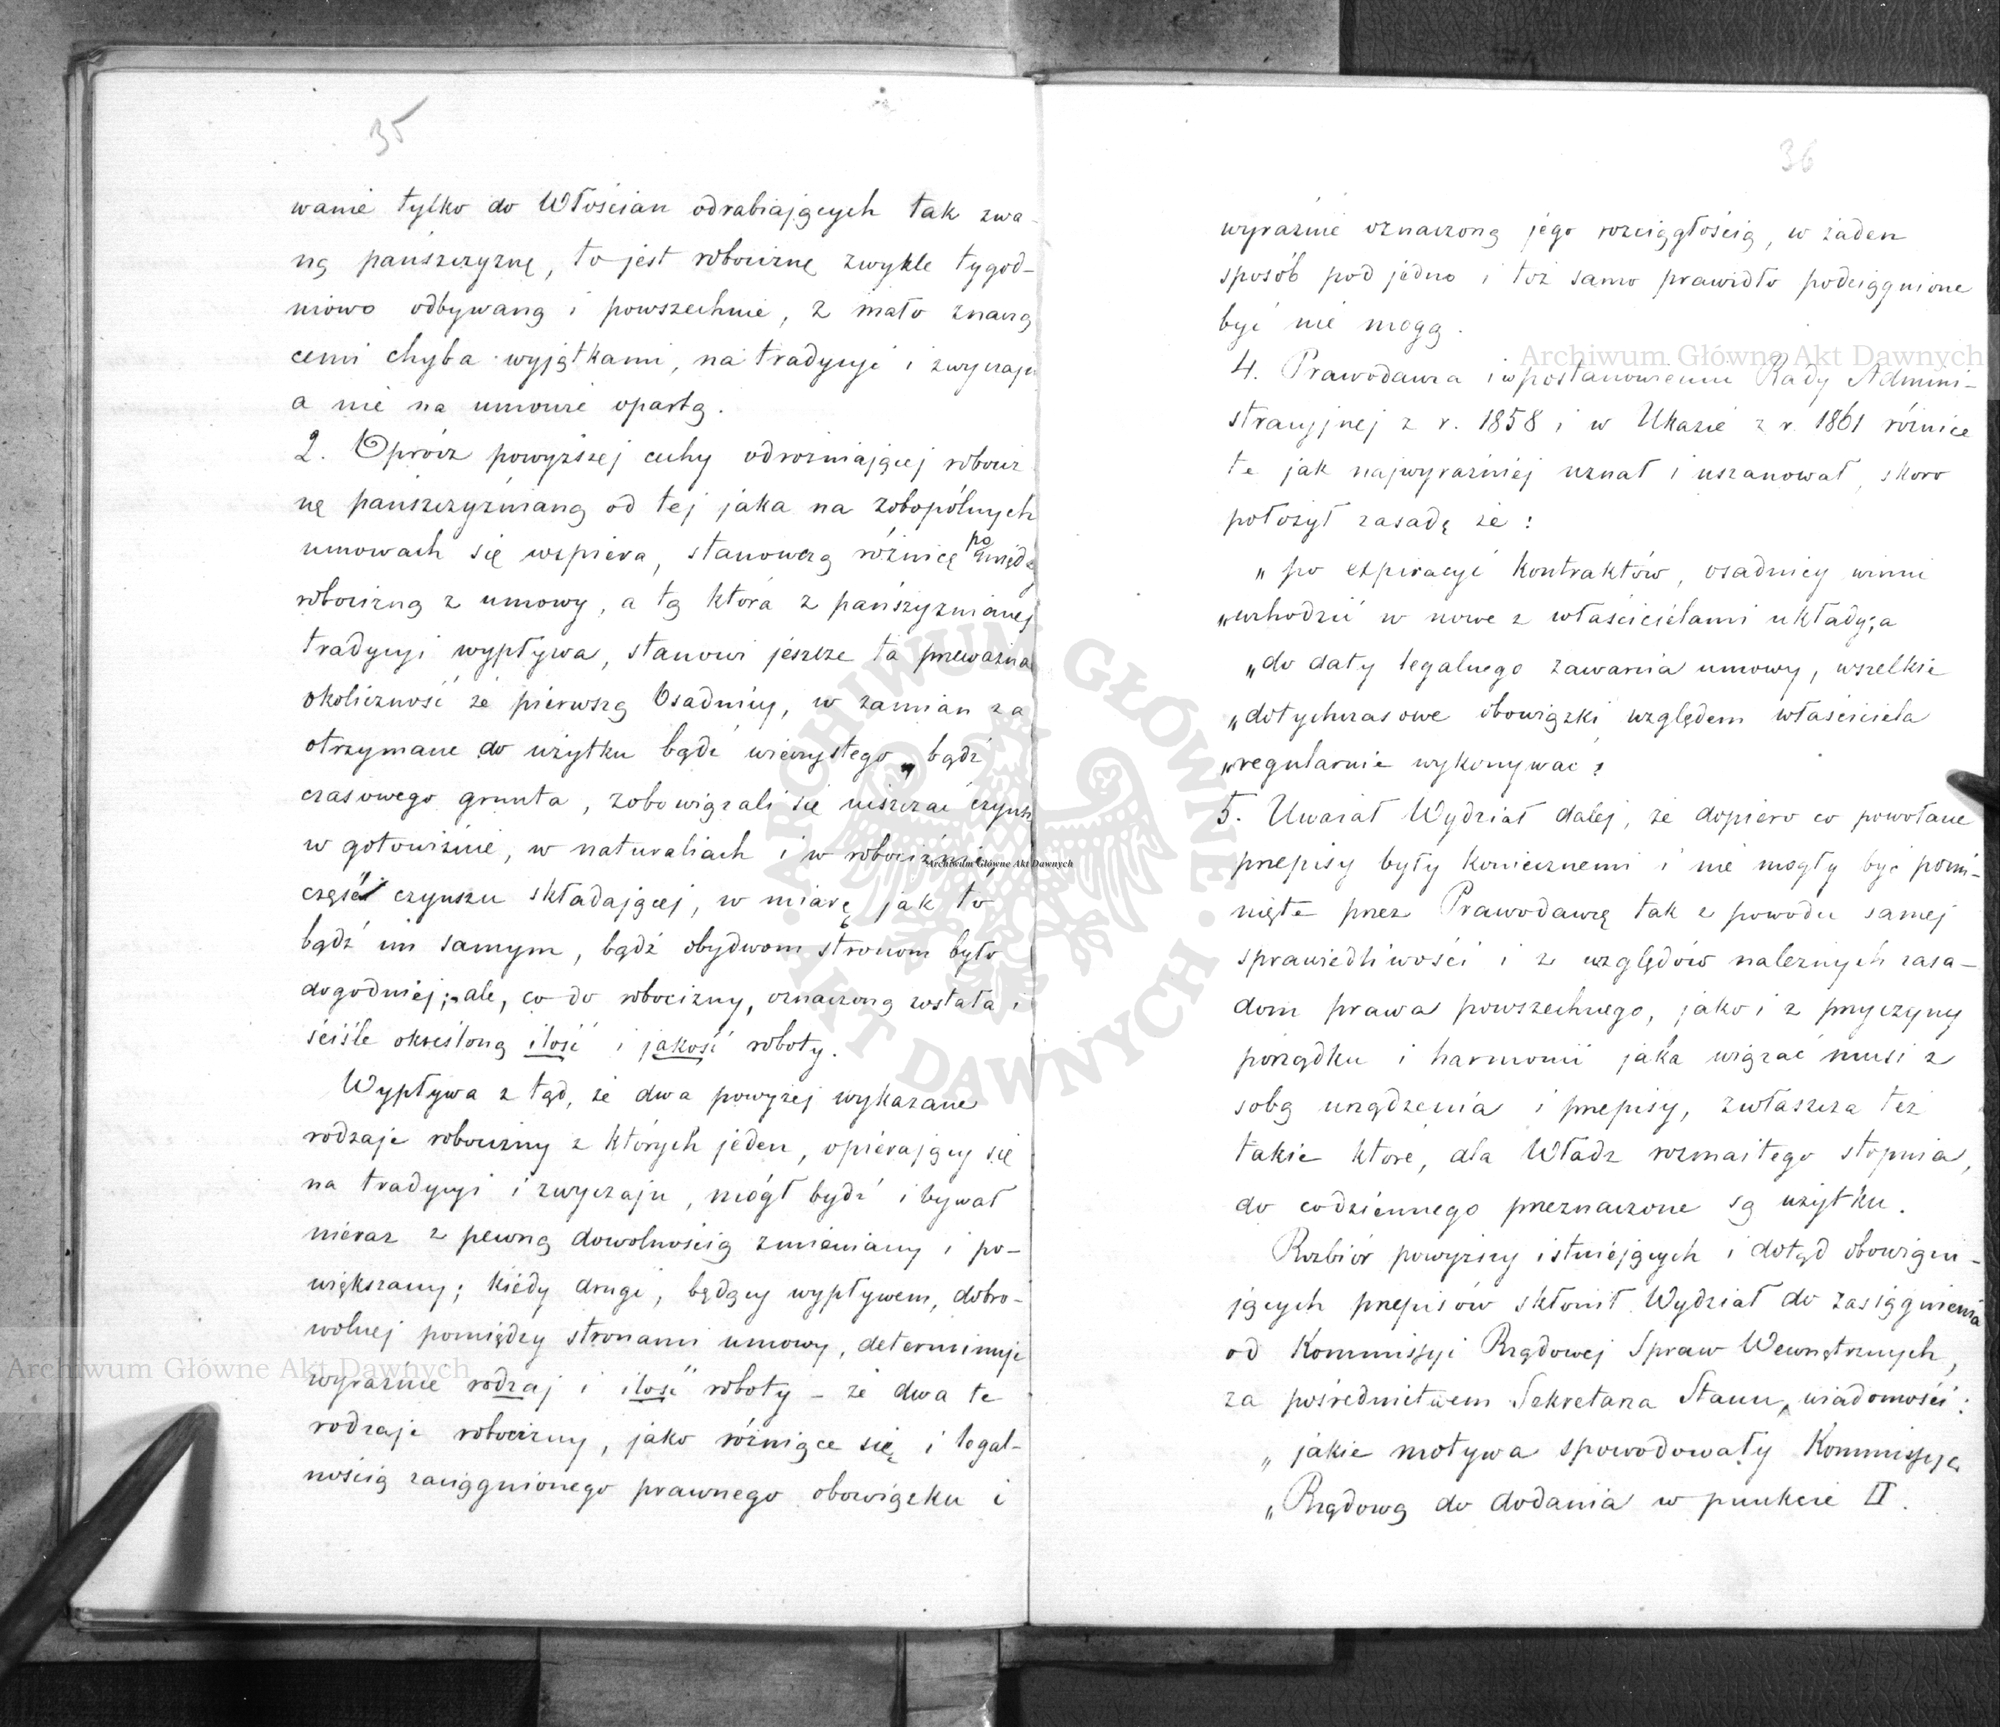 35
wanie tylko do Włościan odrabiających tak zwa-
ną pańszczyznę, to jest robociznę zwykle tygod-
niowo odbywaną i powszechnie, z mało znaczą
cemi chyba wyjątkami, na tradycyi i zwyczaju
a nie na umowie opartą.
2. Oprócz powyższej cechy odrożniającej robociz
nę pańszczyźnianą od tej jaka na zobopólnych
umowach się wspiera, stanowczą różnicę pomiędzy
robocizną z umowy, a tą która z pańszyznianej
tradycyi wypływa, stanowi jeszcze ta przeważna
okoliczność że pierwszą Osadnicy, w zamian za
otrzymane do użytku bądź wieczystego, bądź
czasowego grunta, zobowiązali się uiszczać czynsz
w gotowiźnie, w naturaliach i w robociźnie,
część czynszu składającej, w miarę jak to
bądź im samym, bądź obydwom stronom było
dogodniej; ale, co do robocizny, oznaczoną została i
ściśle określoną ilość i jakość roboty.
Wypływa z tąd, że dwa powyżej wykazane
rodzaje robocizny z których jeden, opierający się
na tradycyi i zwyczaju, mógł bydź i bywał
nieraz z pewną dowolnością zmieniany i po-
większany; kiedy drugi, będący wypływem, dobro-
wolnej pomiędzy stronami umowy, determinuje
wyraźnie rodzaj i ilość roboty – że dwa te
rodzaje robocizny, jako różniące się i legal-
nością zaciągnionego prawnego obowiązku i
36
wyraźnie oznaczoną jego rozciągłością, w żaden
sposób pod jedno i toż samo prawidło podciągnione
być nie mogą.
4. Prawodawca i w postanowieniu Rady Admini-
stracyjnej z r. 1858 i w Ukazie z r. 1861 różnice
te jak najwyraźniej uznał i uszanował, skoro
położył zasadę że:
„po expiracyi kontraktów, osadnicy winni
„wchodzić w nowe z właścicielami układy; a
„do daty legalnego zawarcia umowy, wszelkie
„dotychczasowe obowiązki względem właściciela
„regularnie wykonywać;
5. Uważał Wydział dalej, że dopiero co powołane
przepisy były koniecznemi i nie mogły być pomi-
nięte przez Prawodawcę tak z powodu samej
sprawiedliwości i z względów należnych zasa-
dom prawa powszechnego, jako i z przyczyny
porządku i harmonii jaka wiązać musi z
sobą urządzenia i przepisy, zwłaszcza też
takie które, dla Władz rozmaitego stopnia,
do codziennego przeznaczone są użytku.
Rozbiór powyższy istniejących i dotąd obowiązu-
jących przepisów skłonił Wydział do zasiągnienia
od Kommissyi Rządowej Spraw Wewnętrznych,
za pośrednictwem Sekretarza Stanu, wiadomości:
„jakie motywa spowodowały Kommissyę
„Rządową do dodania w punkcie II.
Archiwum Główne Akt Dawnych
Archiwum Główne Akt Dawnych
Archiwum Główne Akt Dawnych
ARCHIWUM GŁÓWNE · AKT DAWNYCH ·